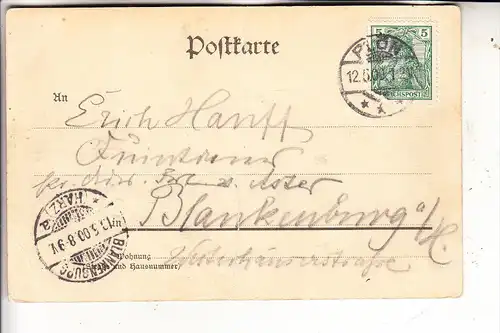 Postkarte
5 5
REICHSPOST
PLÖN
12.5.00.
An
Erich Hanff
Quintaner
Blankenburg a/H.
Westerhäuserstraße
Wohnung
und Hausnummer)
BLANKENBURG
(HARZ) a
13.5.00.8-9V.